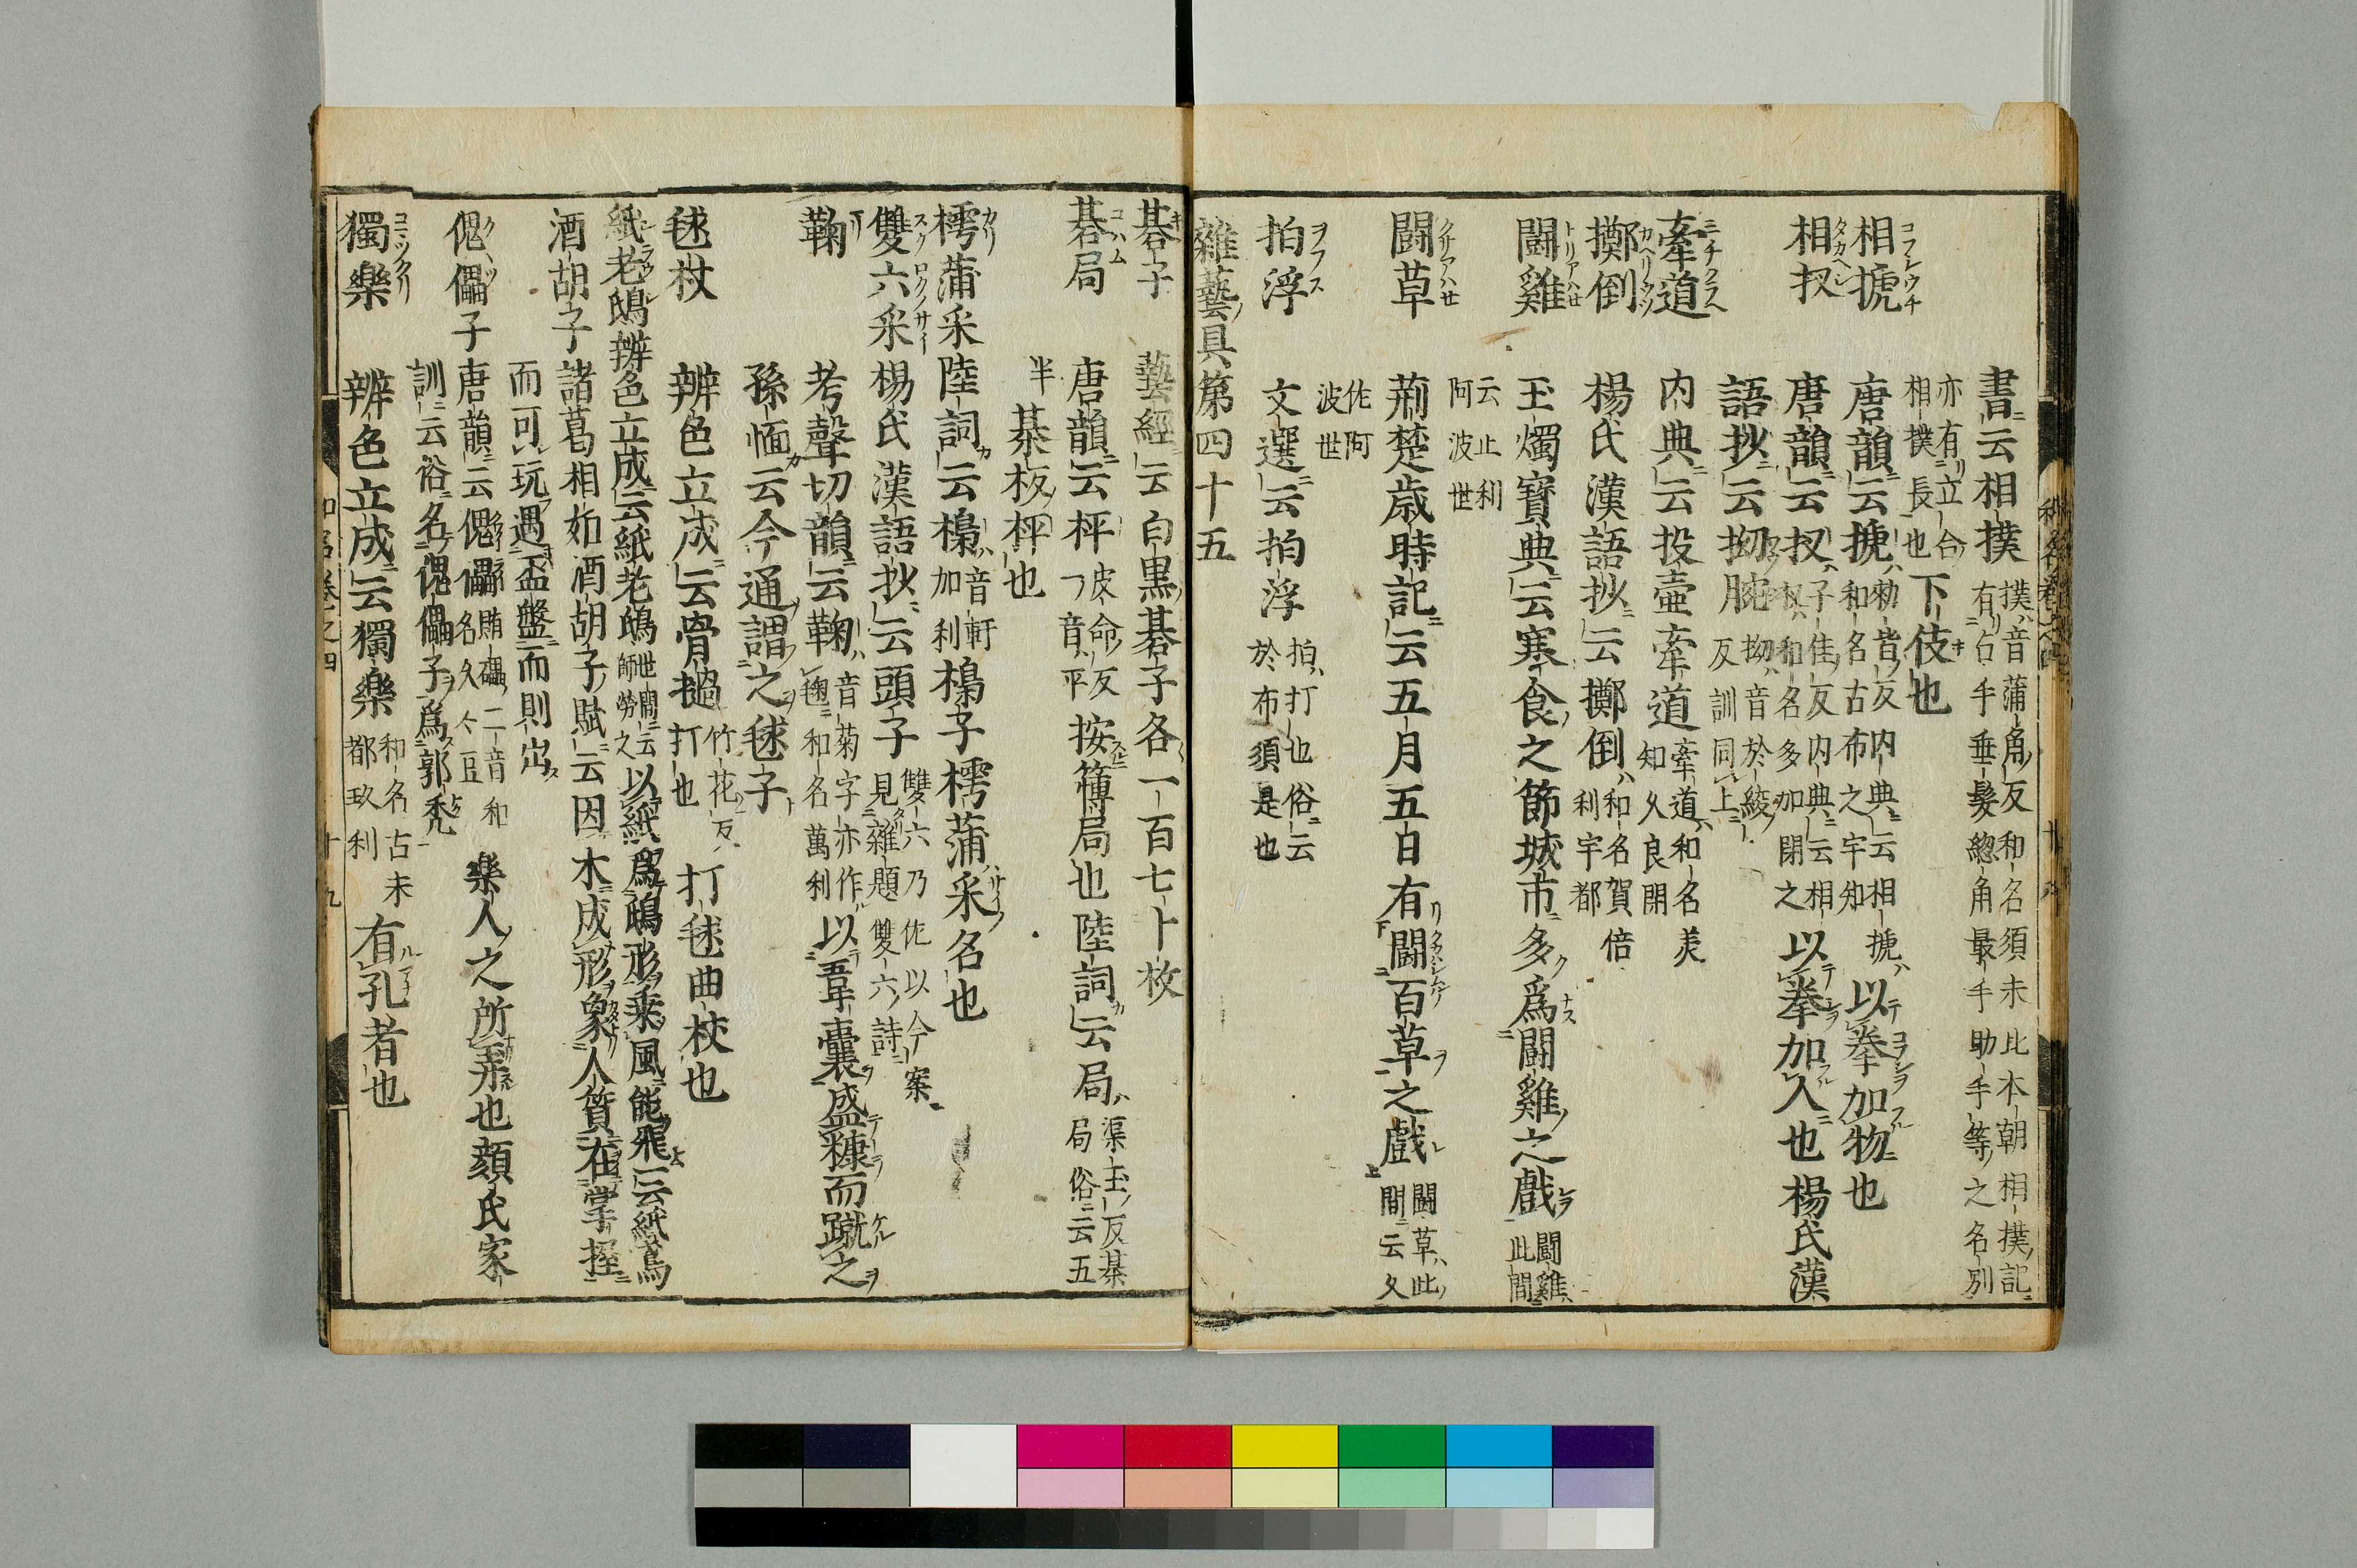 書云相撲 撲音蒲角反和名須末比本朝相撲記
有占手垂髮総角最手助手等之名別
亦有立合
相撲長也 下伎也
相搋 唐韻云搋 勅皆反内典云相搋
和名古布之宇知 以拳加物也
相扠 唐韻云扠 子佳反内典云相
扠和名多加閇之 以拳加入也楊氏漢
語抄云拗腕 拗音於絞
反訓同上
牽道 内典云投壷牽道 牽道和名美
知久良閇
擲倒 楊氏漢語抄云擲倒 和名賀倍
利宇都
闘雞 玉燭寶典云寒食之節城市多爲闘雞之戲 闘雞
此間
云止利
阿波世
闘草 荊楚歳時記云五月五日有闘百草之戲 闘草此
間云久
佐阿
波世
拍浮 文選云拍浮 拍打也俗云
於布須是也
雜藝具第四十五
碁子 藝經云白黒碁子各一百七十枚
碁局 唐韻云枰 皮命反
一音平 按簿局也陸詞云局 渠玉反棊
局俗云五
半 棊板枰也
樗蒲采 陸詞云梟 音軒
加利 梟子樗蒲采名也
雙六采 楊氏漢語抄云頭子 雙六乃佐以今案
見雜題雙六詩
鞠 考聲切韻云鞠 音菊字亦作
毱和名萬利 以韋囊盛糠而蹴之
孫愐云今通謂之毬子
毬杖 辨色立成云骨撾 竹花反
打也 打毬曲杖也
紙老鴟 辨色立成云紙老鴟 世間云
師勞之 以紙爲鴟形乗風能飛一云紙鳶
酒胡子 諸葛相如酒胡子賦云因木成形象人質在掌握
而可玩遇盃盤而則㞮
傀儡子 唐韻云傀儡 賄礧二音和
名久々豆 樂人之所弄也顔氏家
訓云俗名傀儡子爲郭禿
獨樂 辨色立成云獨樂 和名古末
都玖利 有孔者也
和名卷之四 十九